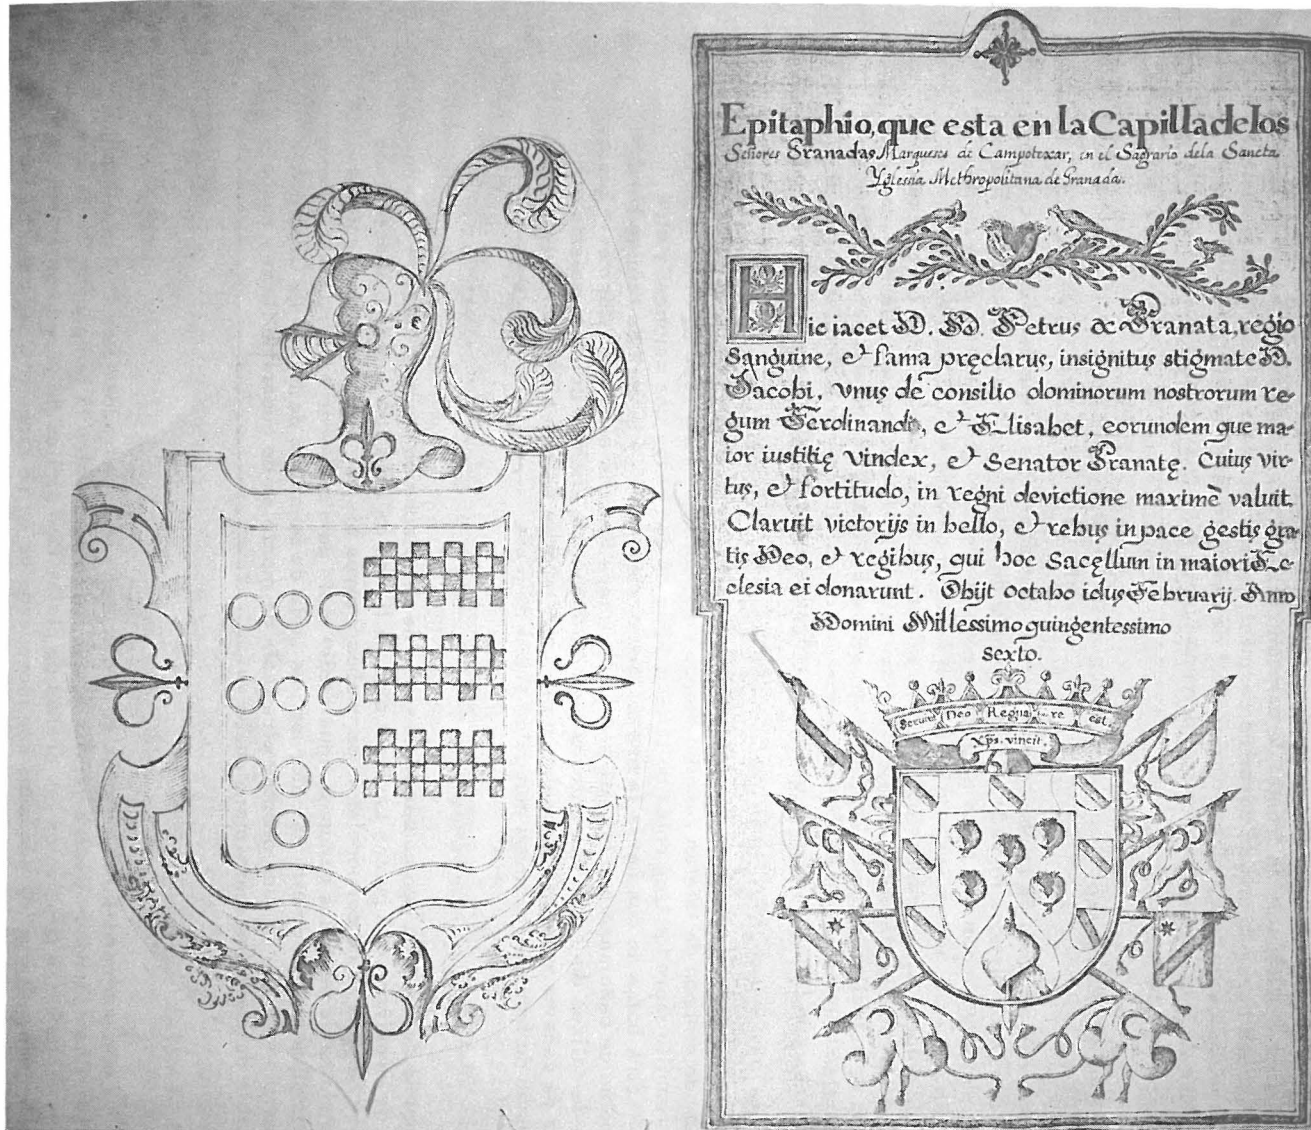 Epitaphio, que esta en la Capilla de los
Señores Granadas Marqueses de Campotexar, en el Sagrario de la Sancta
Yglesia Methropolitana de Granada.
Hic iacet D. D. Petrus de Granata, regio
Sanguine, et fama pręclarus, insignitus stigmate D.
Jacobi, vnus de consilio dominorum nostrorum re-
gum Ferdinandi, et Elisabet, eorundem que ma-
ior iustitię vindex, et Senator Granatę. Cuius vir-
tus, et fortitudo, in regni devictione maximè valuit.
Claruit victorijs in bello, et rebus in pace gestis gra-
tis Deo, et regibus, qui hoc Sacęllum in maiori Ec-
clesia ei donarunt. Obijt octabo idus Februarij. Anno
Domini Millessimo quingentessimo
sexto.
Servire Deo Regnare est.
Xps. vincit.